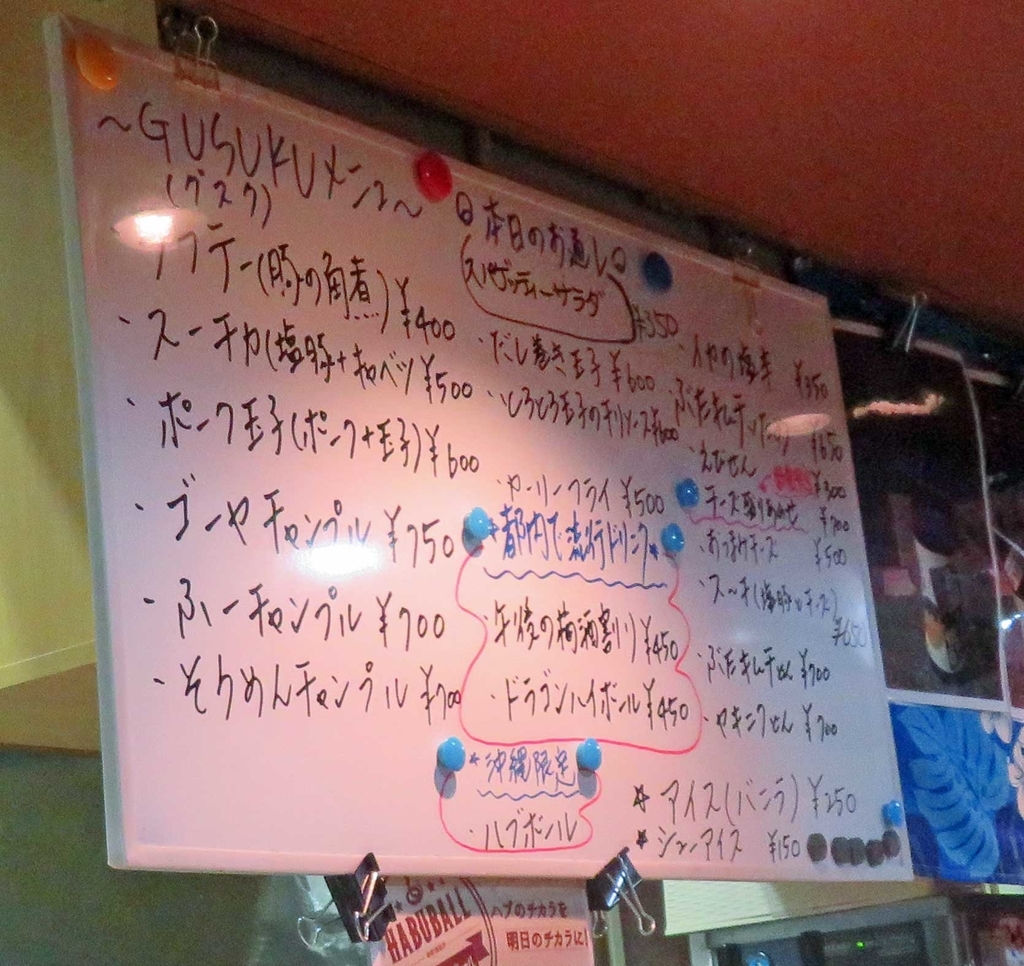 ～GUSUKUメニュー～
(グスク)
ラフテー(豚の角煮)¥400
・スーチカ(塩豚+キャベツ)¥500
・ポーク玉子(ポーク+玉子)¥600
・ゴーヤチャンプル¥750
・ふーチャンプル¥700
・そうめんチャンプル¥700
本日のお通し
スパゲッティーサラダ
¥350
・だし巻き玉子¥600
・とろとろ玉子のチリソース¥600
・カーリーフライ¥500
*都内で流行ドリンク*
¥450
・ドラゴンハイボール¥450
*沖縄限定
・ハブボール
・イカの塩辛 ¥350
¥650
・えびせん ¥300
・チーズ盛り合わせ ¥700
・おつまみチーズ ¥500
・スーチ(塩豚 チーズ)
¥650
・ぶたキムチ ¥700
¥700
☆アイス(バニラ)¥250
★シューアイス ¥150
HABUBALL
ハブのチカラを
明日のチカラに!